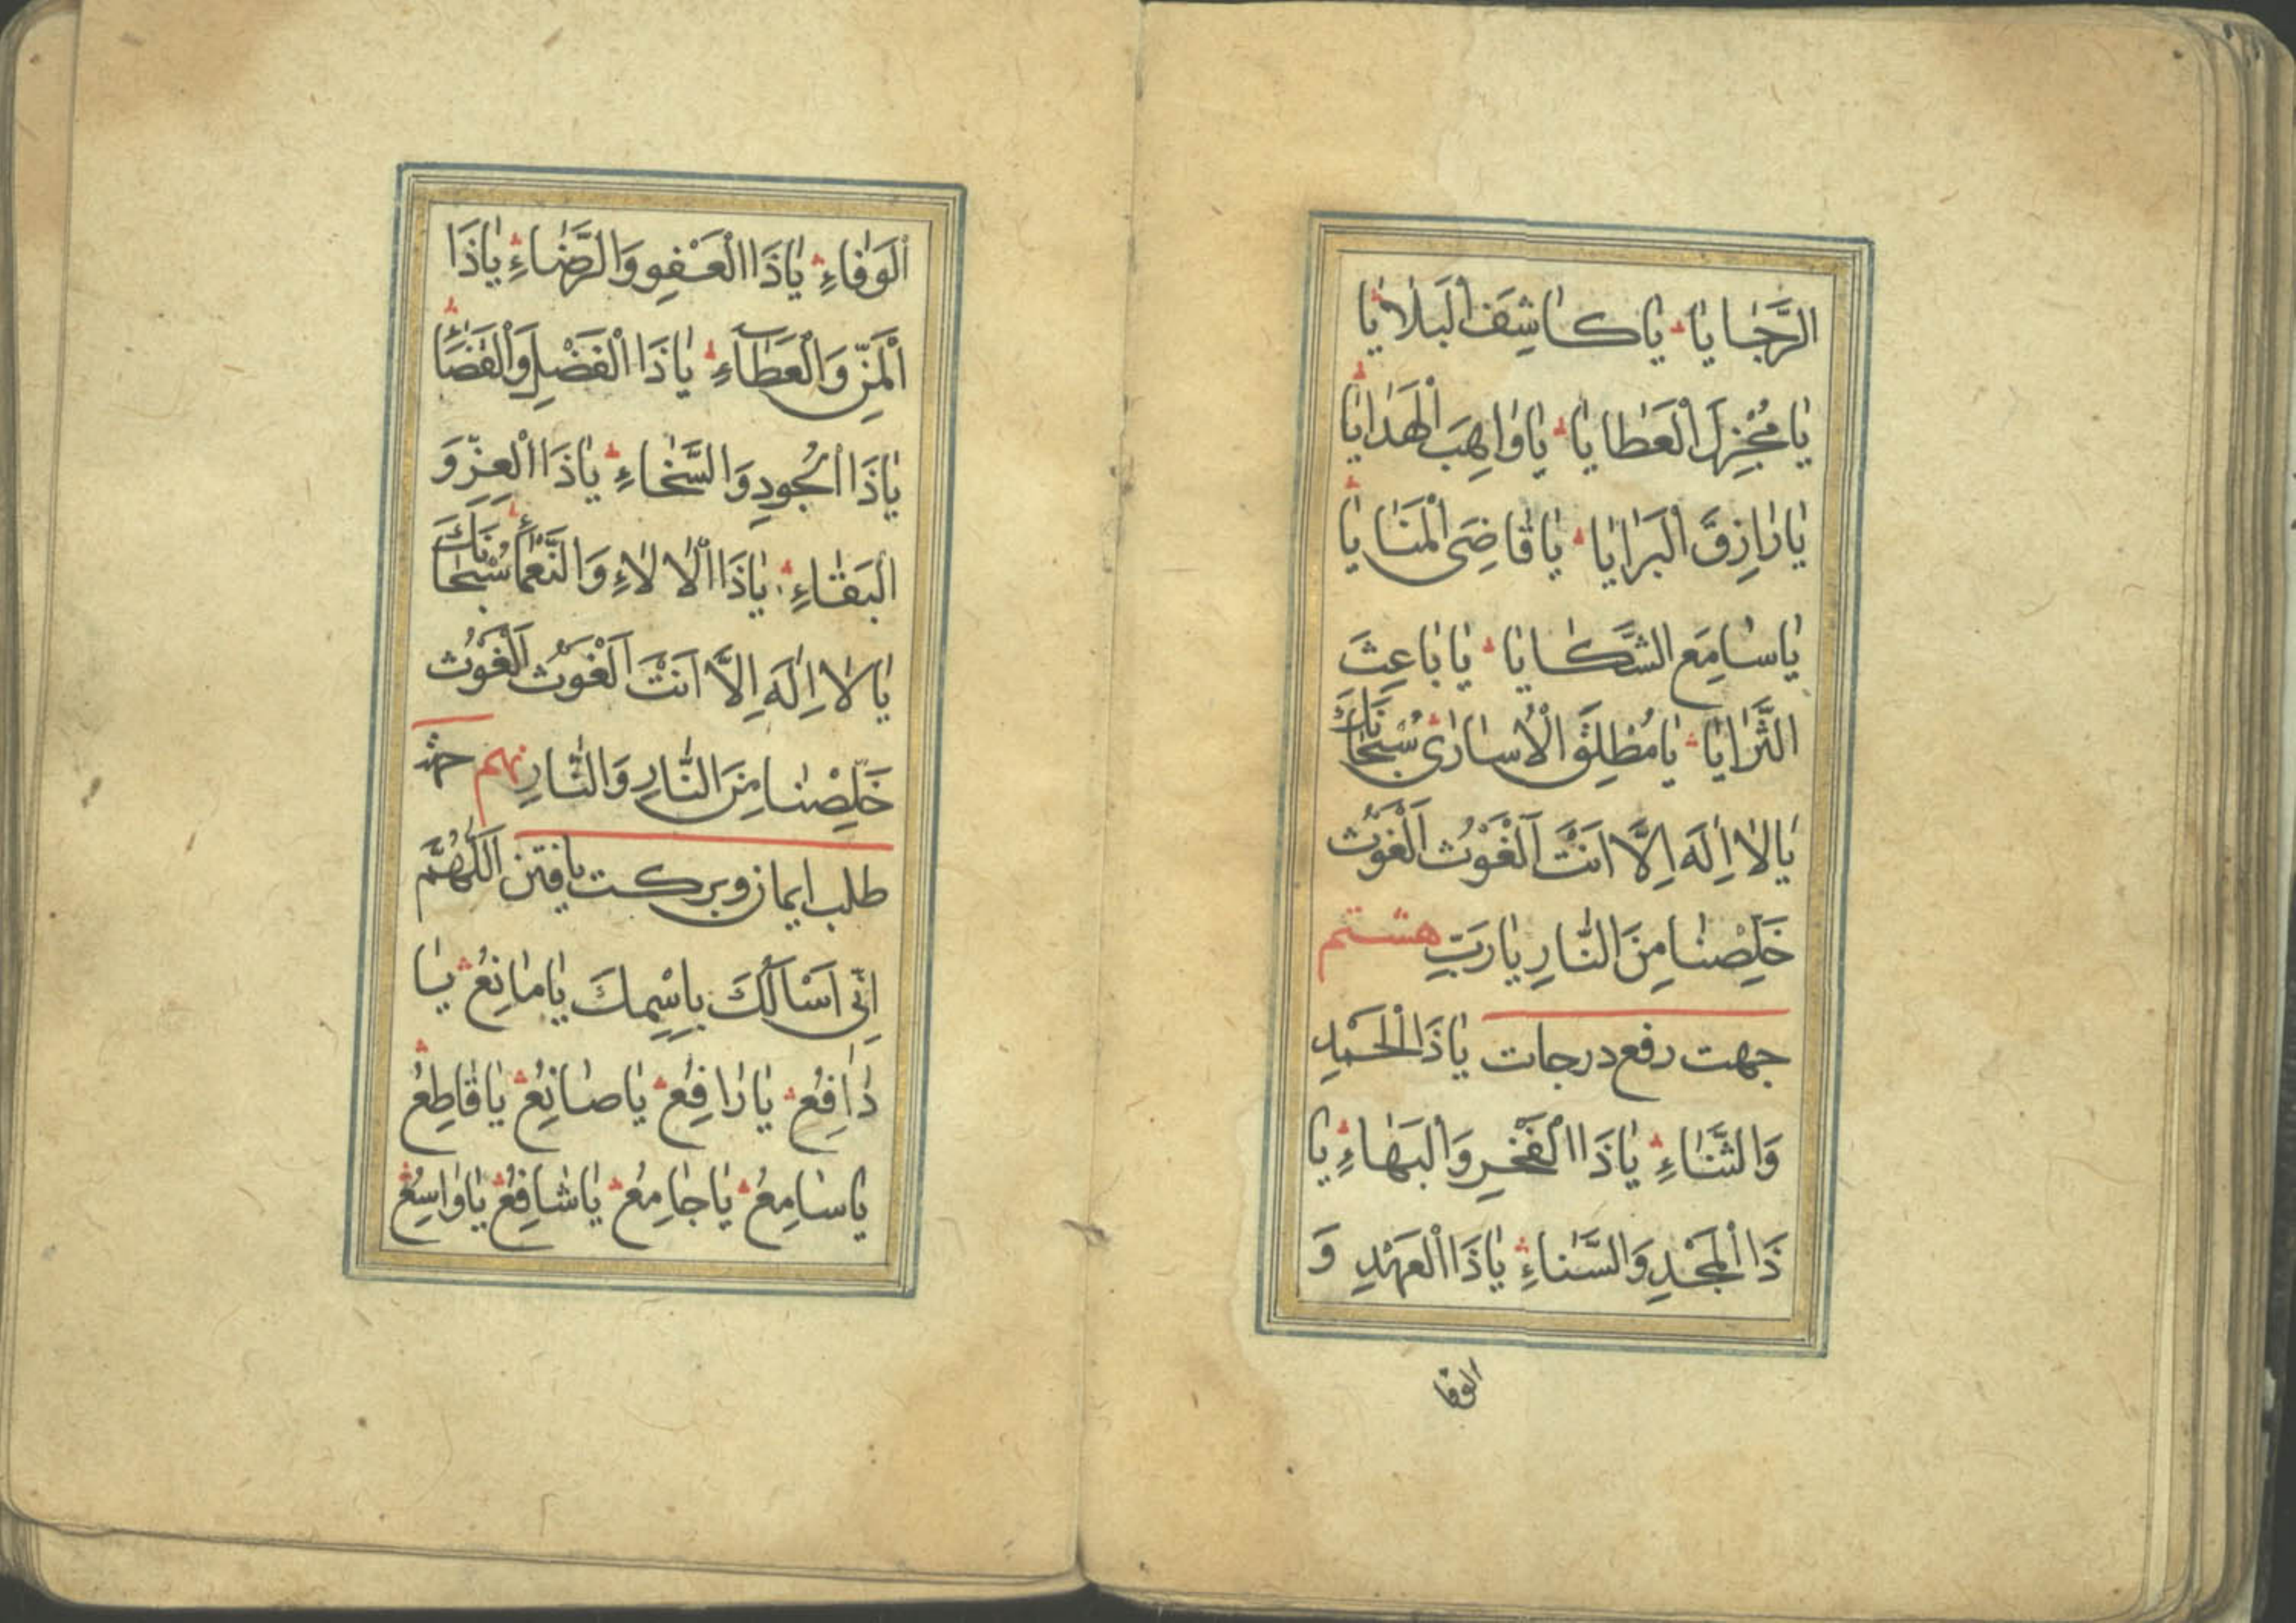 الرَّجٰايٰا يٰا كٰاشِفَ الْبَلٰايٰا
يٰا مُجْزِلَ الْعَطٰايٰا يٰا وٰاهِبَ الْهَدٰايٰا
يٰا رٰازِقَ الْبَرٰايٰا يٰا قٰاضِىَ الْمَنٰايٰا
يٰا سٰامِعَ الشَّكٰايٰا يٰا بٰاعِثَ
الثَّرٰايٰا يٰا مُطْلِقَ الْاُسٰارٰى سُبْحٰانَكَ
يٰا لٰا اِلٰهَ اِلَّا اَنْتَ اَلْغَوْثَ اَلْغَوْثَ
خَلِّصْنٰا مِنَ النّٰارِ يٰا رَبِّ هشتم
جهت رفع درجات يٰا ذَا الْحَمْدِ
وَالثَّنٰاءِ يٰا ذَا الْفَخْرِ وَالْبَهٰاءِ يٰا
ذَا الْمَجْدِ وَالسَّنٰاءِ يٰا ذَا الْعَهْدِ وَ
الوفا
الْوَفٰاءِ يٰا ذَا الْعَفْوِ وَالرَّضٰاءِ يٰا ذَا
الْمَنِّ وَالْعَطٰآءِ يٰا ذَا الْفَضْلِ وَالْقَضٰاءِ
يٰا ذَا الْجُودِ وَالسَّخٰاءِ يٰا ذَا الْعِزِّ وَ
الْبَقٰاءِ يٰا ذَا الْاٰلٰاءِ وَالنَّعْمٰاءِ سُبْحٰانَكَ
يٰا لٰا اِلٰهَ اِلَّا اَنْتَ اَلْغَوْثَ اَلْغَوْثَ
خَلِّصْنٰا مِنَ النّٰارِ وَالنّٰارِ نهم جهة
طلب ايمان و بركت يافتن اَللّٰهُمَّ
اِنّٖى اَسْاَلُكَ بِاسْمِكَ يٰا مٰانِعُ يٰا
دٰافِعُ يٰا رٰافِعُ يٰا صٰانِعُ يٰا قٰاطِعُ
يٰا سٰامِعُ يٰا جٰامِعُ يٰا شٰافِعُ يٰا وٰاسِعُ